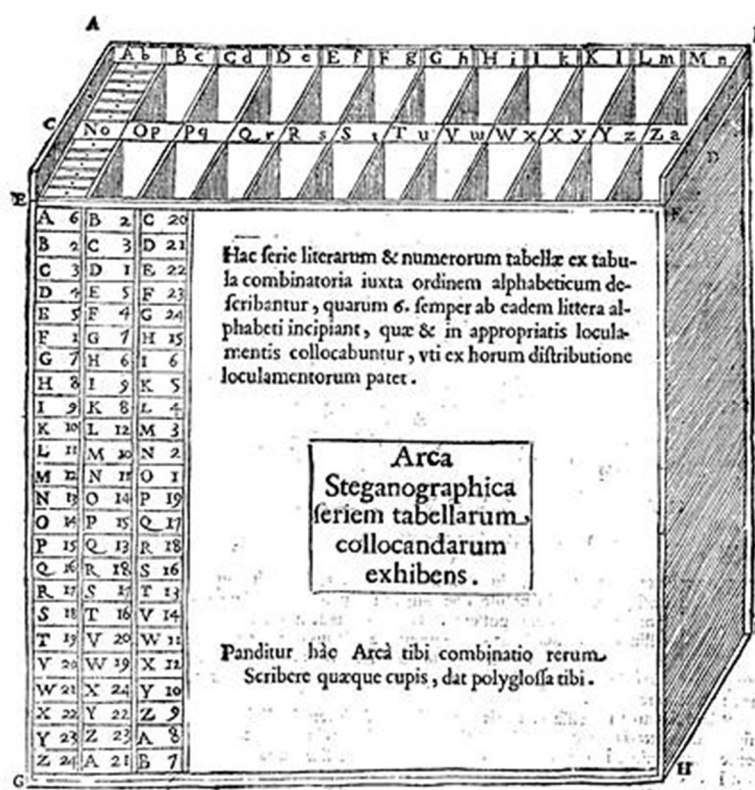 A
Ab Bc Cd De Ef Fg Gh Hi Ik Kl Lm Mn
C
No Op Pq Qr Rs St Tu Vw Wx Xy Yz Za
D
E
F
A 6 B 2 C 20
B 2 C 3 D 21
C 3 D 1 E 22
D 4 E 5 F 23
E 5 F 4 G 24
F 1 G 7 H 15
G 7 H 6 I 6
H 8 I 9 K 5
I 9 K 8 L 4
K 10 L 12 M 3
L 11 M 10 N 2
M 12 N 11 O 1
N 13 O 14 P 19
O 14 P 15 Q 17
P 15 Q 13 R 18
Q 16 R 18 S 16
R 17 S 17 T 13
S 18 T 16 V 14
T 19 V 20 W 11
V 20 W 19 X 12
W 21 X 24 Y 10
X 22 Y 22 Z 9
Y 23 Z 23 A 8
Z 24 A 21 B 7
Hac ſerie literarum & numerorum tabellæ ex tabu-
la combinatoria iuxta ordinem alphabeticum de-
ſcribantur, quarum 6. ſemper ab eadem littera al-
phabeti incipiant, quæ & in appropriatis locula-
mentis collocabuntur, vti ex horum diſtributione
loculamentorum patet.
Arca
Steganographica
ſeriem tabellarum
collocandarum
exhibens.
Panditur hâc Arcâ tibi combinatio rerum
Scribere quæque cupis, dat polygloſſa tibi.
G
H